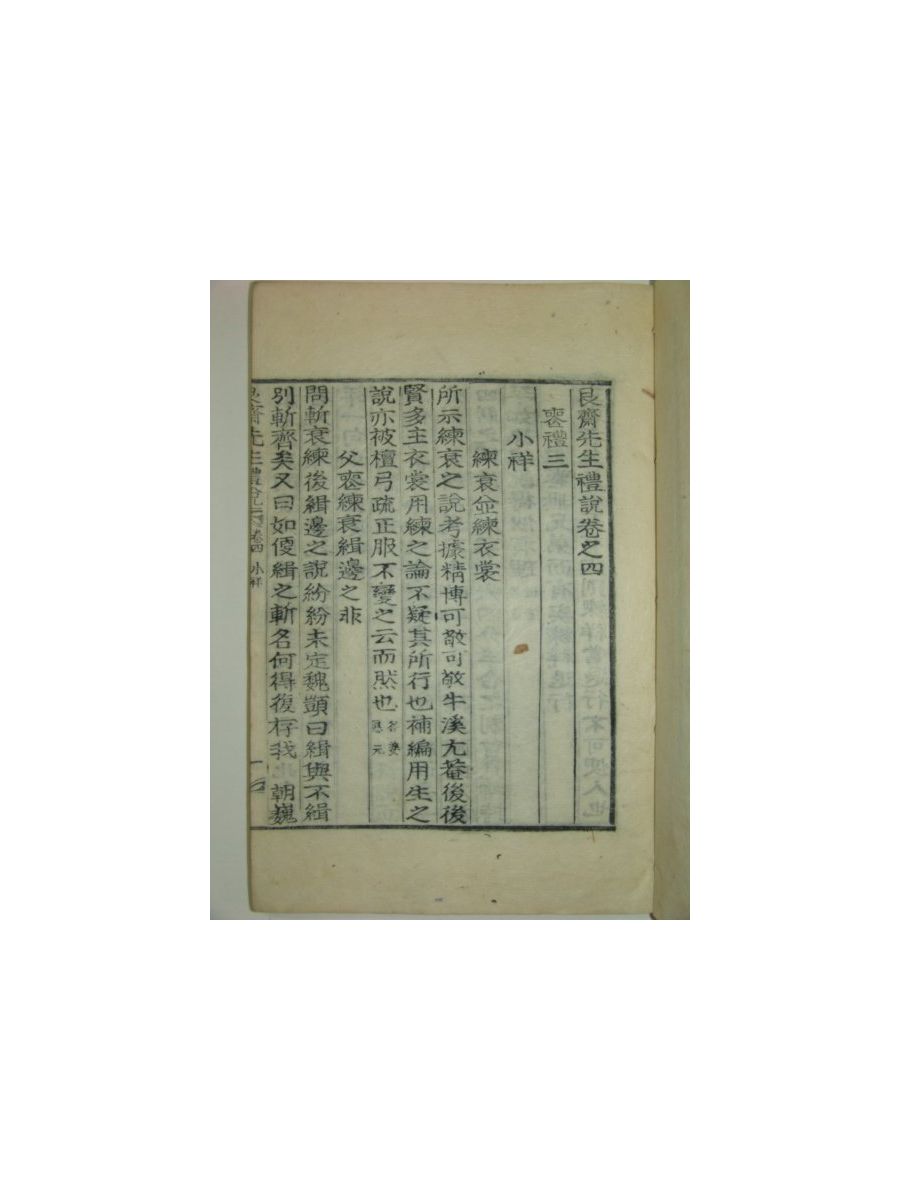 艮齋先生禮說卷之四
喪禮三
小祥
練衰並練衣裳
所示練衰之說考據精博可敬可敬牛溪尤菴後後
賢多主衣裳用練之論不疑其所行也補編用生之
說亦被檀弓疏正服不變之云而然也
父喪練衰緝邊之非
問斬衰練後緝邊之說紛紛未定魏顗曰緝與不緝
別斬齊矣又曰如復緝之斬名何得復存我朝巍
艮齋先生禮說 卷四 小祥